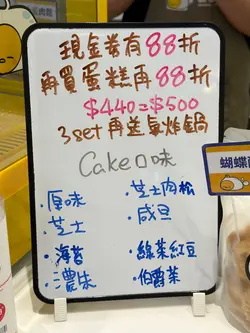 現金券有88折
再買蛋糕再88折
$440=$500
3set再送氣炸鍋
Cake口味
·原味
·芝士
·海苔
·濃味
·芝士肉松
·咸旦
·綠茶紅豆
·伯爵茶
蝴蝶